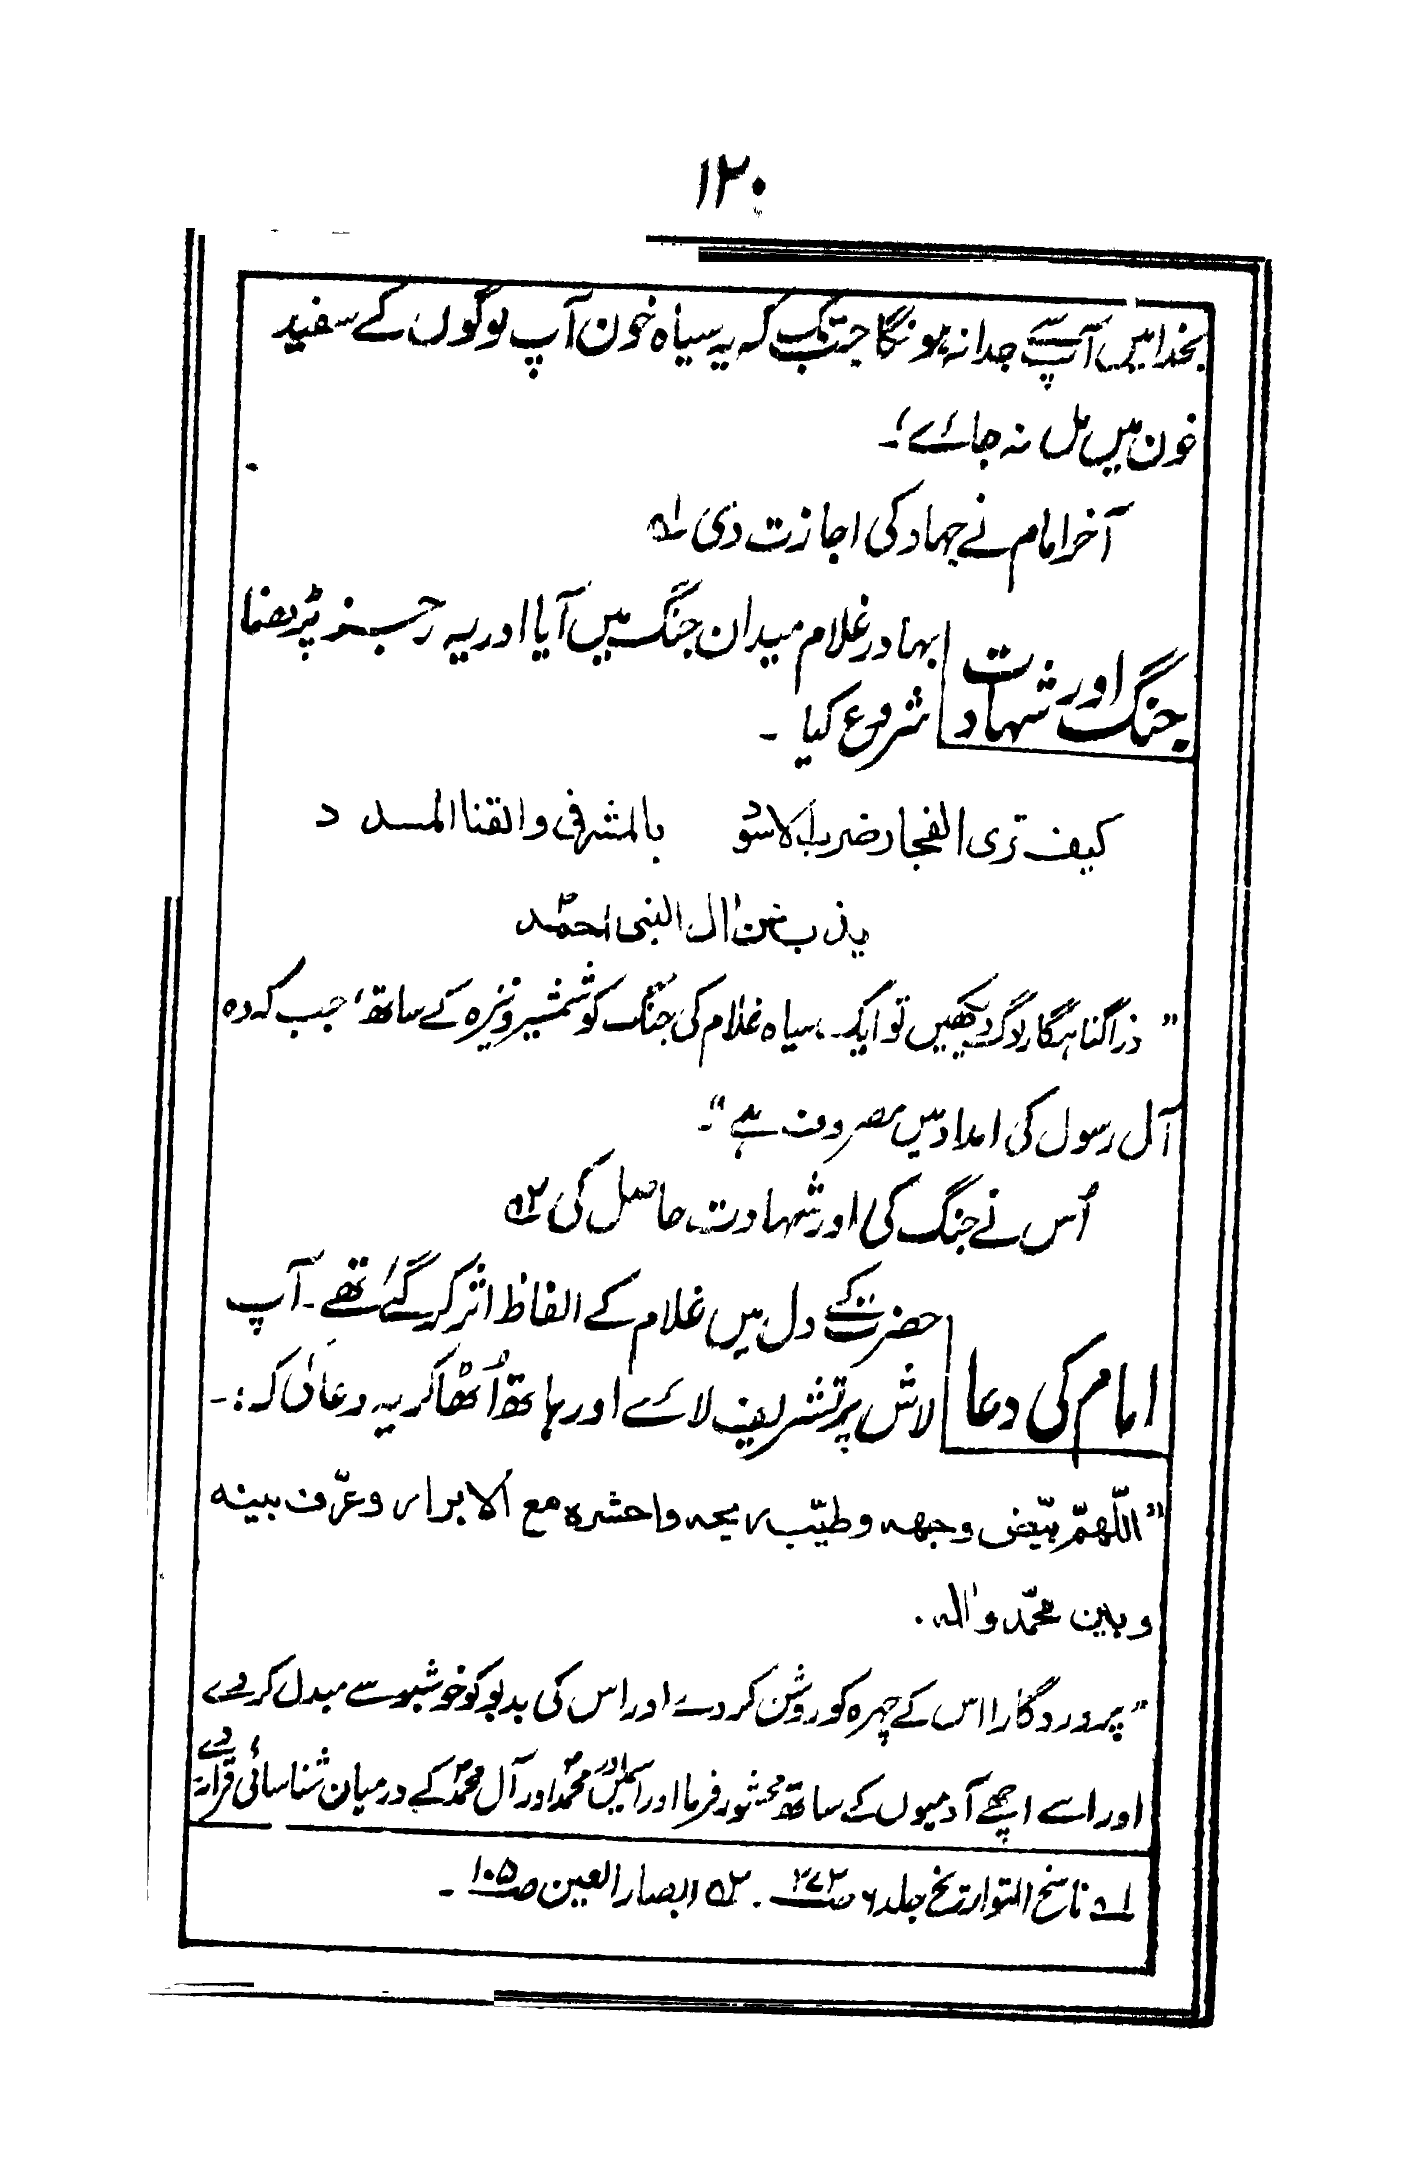 ۱۲۰
بخدا میں آپ سے جدا نہ ہونگا جب تک کہ یہ سیاہ خون آپ لوگوں کے سفید
خون میں مل نہ جائے'۔
آخر امام نے جہاد کی اجازت دی ۱؎
جنگ اور شہادت
بہادر غلام میدان جنگ میں آیا اور یہ رجز پڑھنا
شروع کیا ۔
کیف تری الفجار ضرب الاسود بالمشرفی والقنا المسدد
یذب عن اٰل النبی احمد
"ذرا گناہگار لوگ دیکھیں تو ایک سیاہ غلام کی جنگ کو شمشیر و نیزہ کے ساتھ' جب کہ وہ
آل رسول کی امداد میں مصروف ہے"۔
اُس نے جنگ کی اور شہادت حاصل کی ۲؎
امام کی دعا
حضرت کے دل میں غلام کے الفاظ اثر کر گئے تھے ۔ آپ
لاش پر تشریف لائے اور ہاتھ اُٹھا کر یہ دعا کی کہ :۔
"اللّٰھمّ بیّض وجھہ وطیّب ریحہ واحشرہ مع الابرار وعرّف بینہ
وبین محمّد واٰلہ ۔
"پروردگارا اس کے چہرہ کو روشن کر دے اور اس کی بدبو کو خوشبو سے مبدل کر دے
اور اسے اچھے آدمیوں کے ساتھ محشور فرما اور اسمیں اور محمدؐ اور آل محمدؐ کے درمیان شناسائی قرار دے
۱؎ ناسخ التواریخ جلد ۶ ص۲۷۲ ۔ ۲؎ ابصار العین ص۱۰۵ ۔